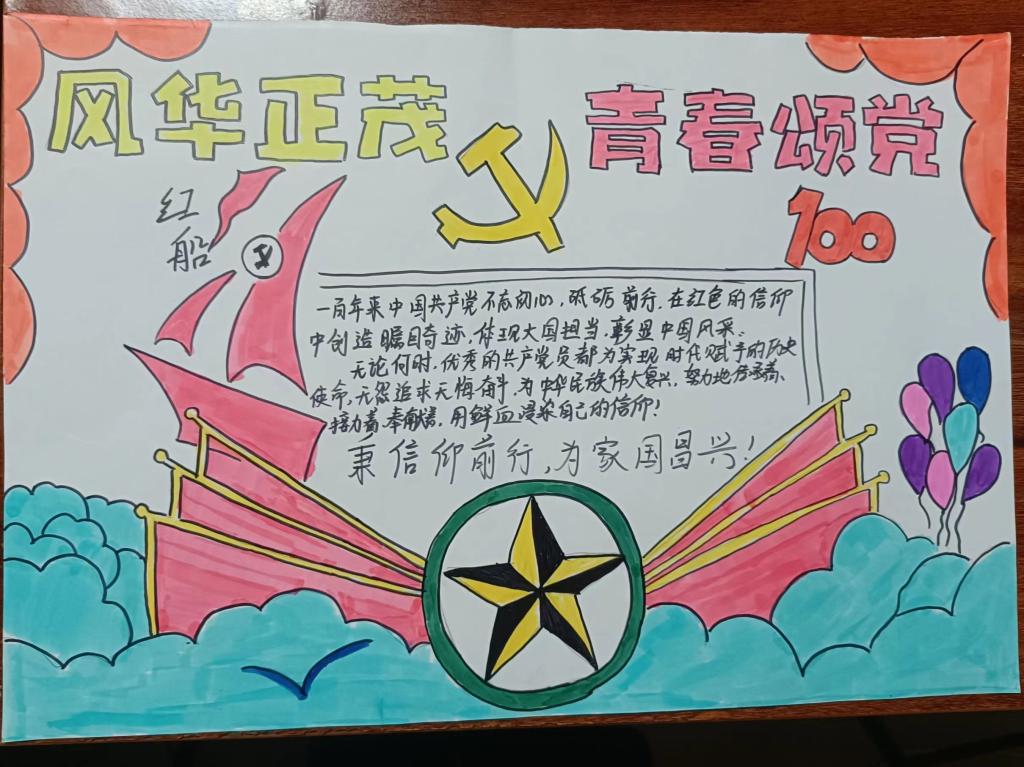 风华正茂
青春颂党
100
红船
一百年来中国共产党不忘初心，砥砺前行，在红色的信仰
中创造瞩目奇迹，体现大国担当，彰显中国风采。
无论何时，优秀的共产党员都为实现时代赋予的历史
使命，无怨追求无悔奋斗，为中华民族伟大复兴，努力地传承着、
接力着、奉献着，用鲜血浸染自己的信仰！
秉信仰前行，为家国昌兴！